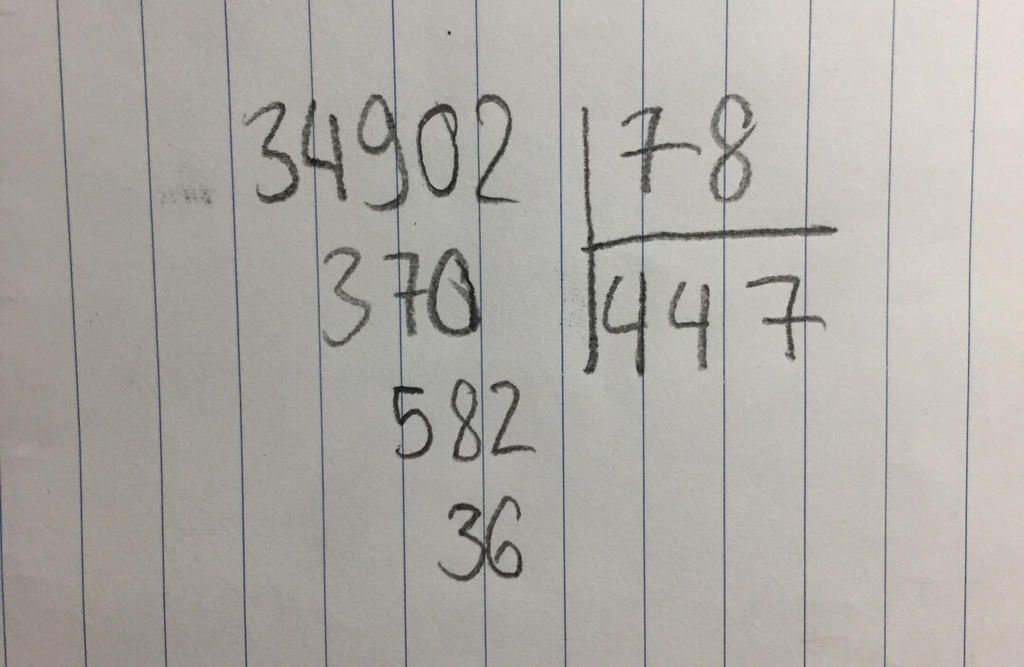 34902 78
370 447
582
36